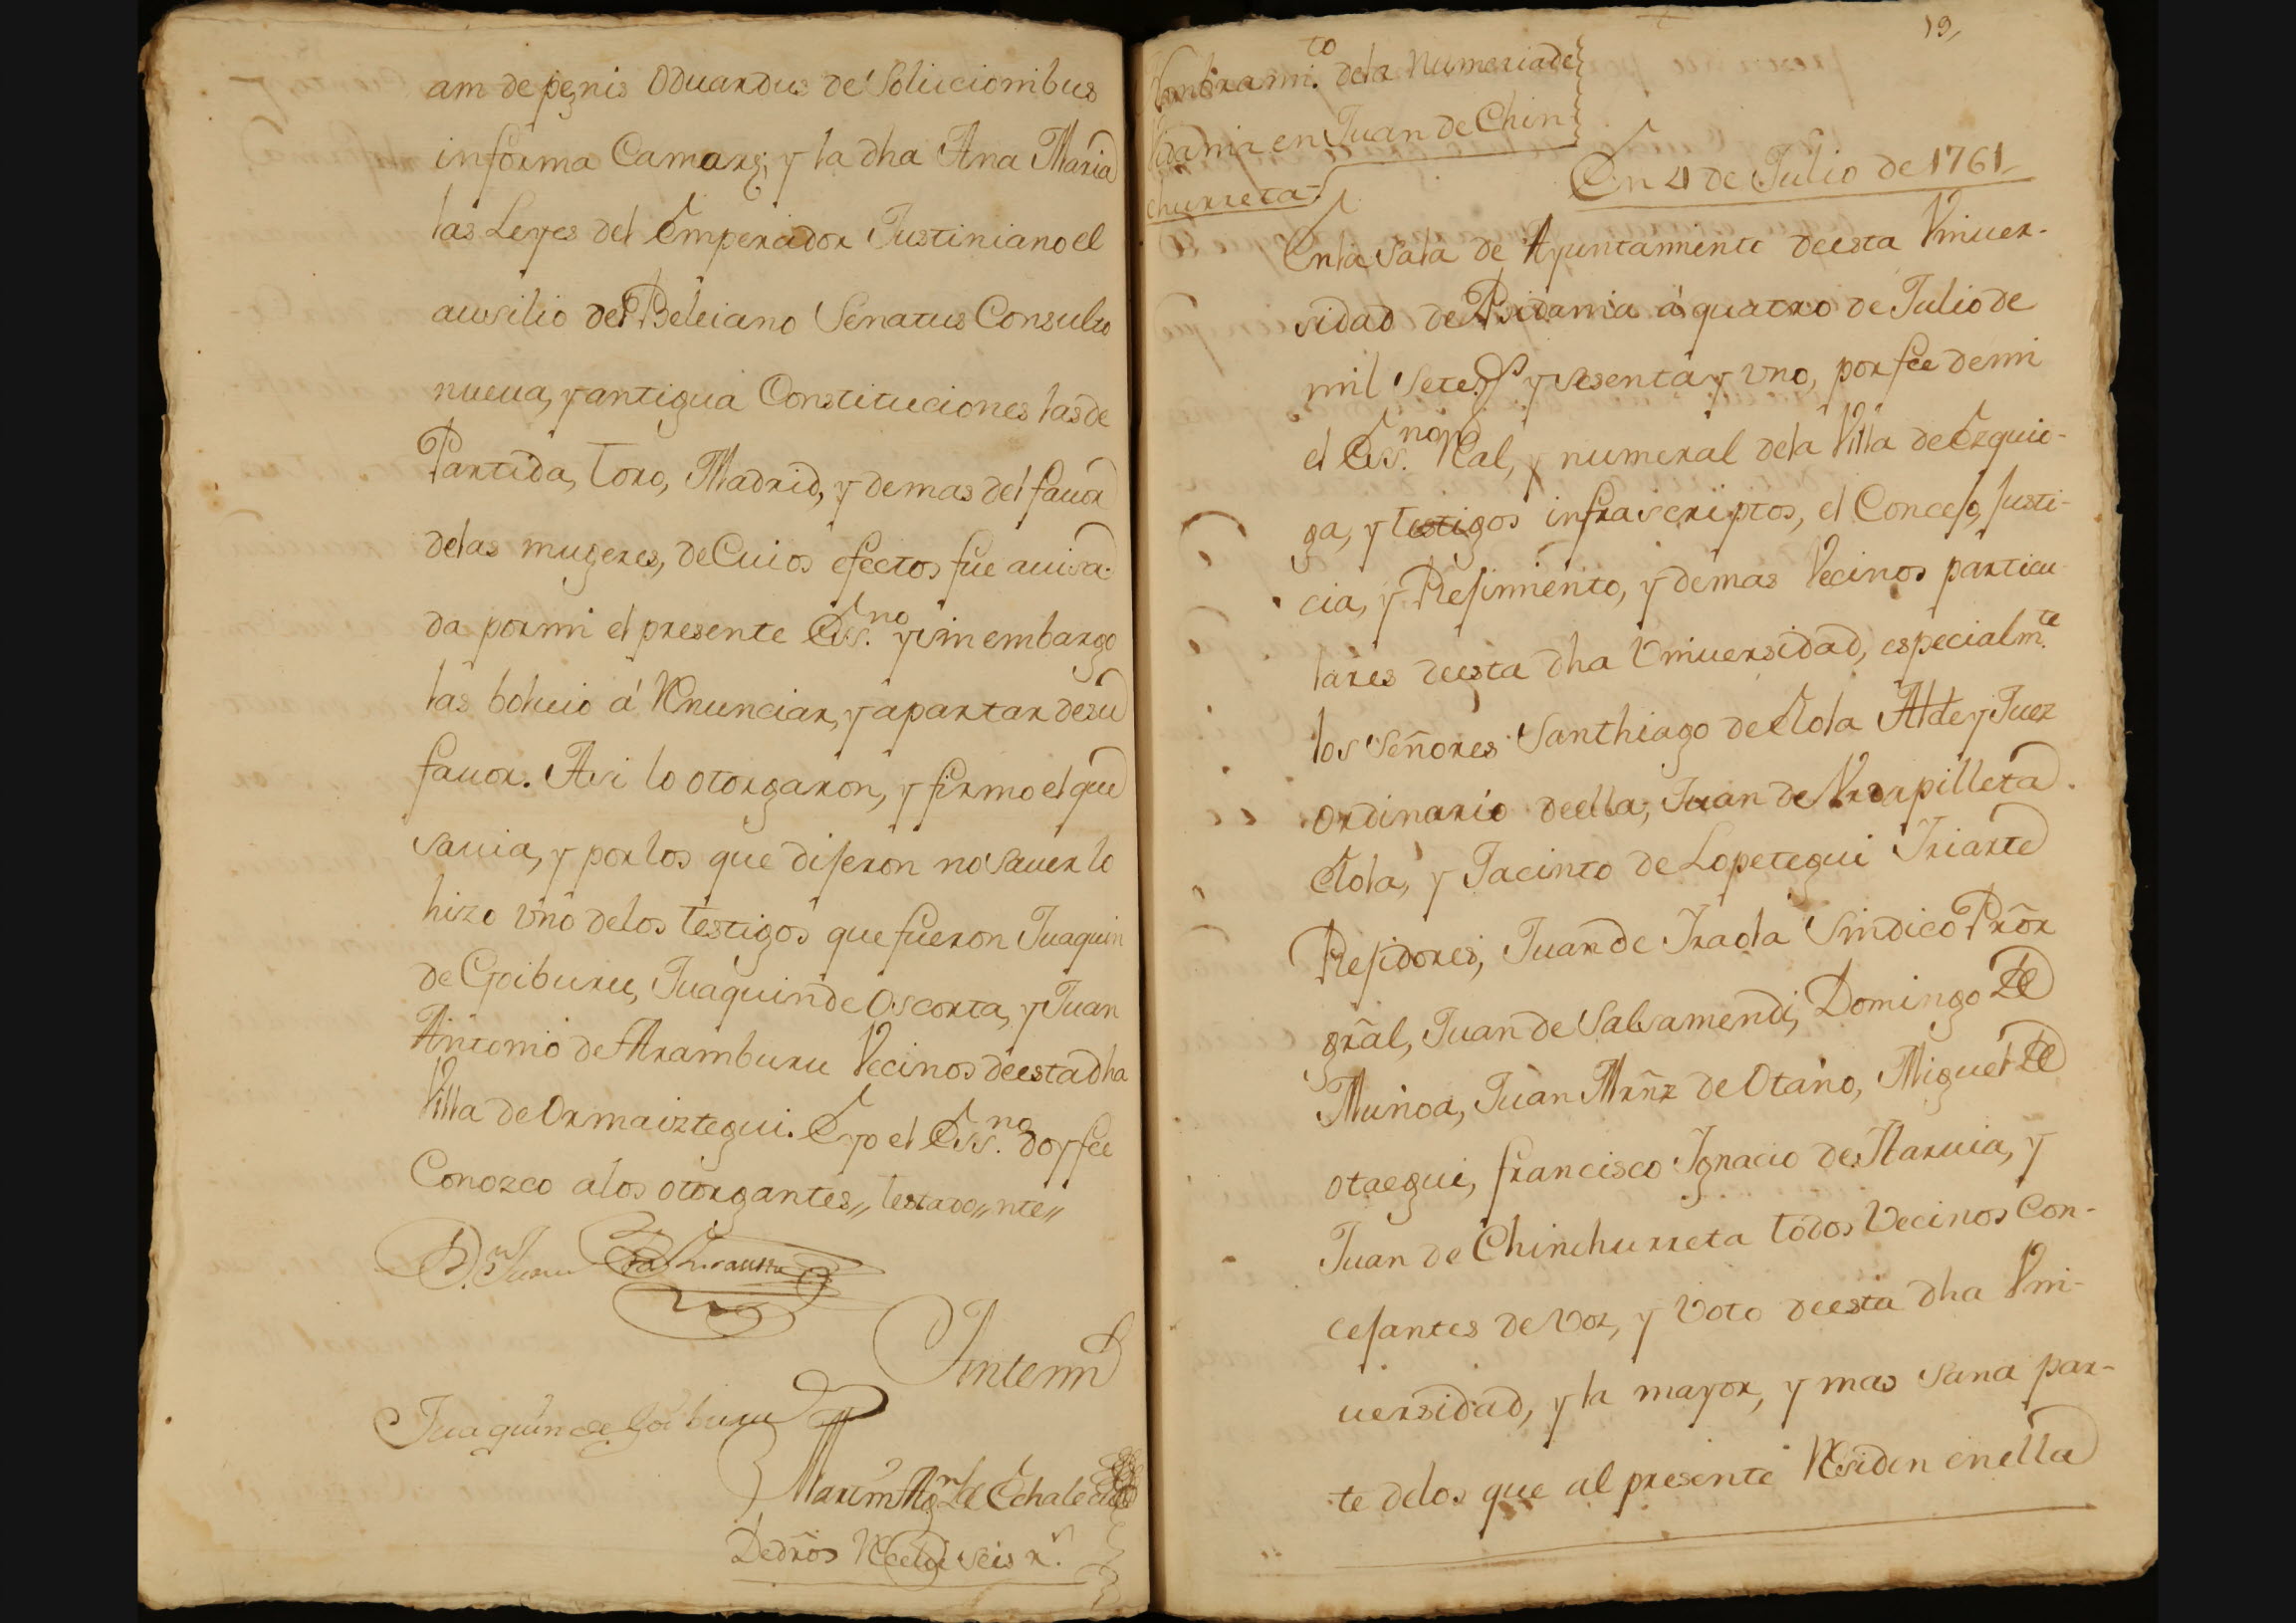 am de penis Oduardus de Solucionibus
informa Camarę; y la dha Ana Maria
las Leyes del Emperador Justiniano el
ausilio del Beleiano Senatus Consulto
nueua, y antigua Constituciones las de
Partida, Toro, Madrid, y demas del fauor
delas mugeres, de Cuios efectos fue auisa-
da por mi el presente Ess.no y sin embargo
las boluio á Renunciar, y apartar de su
fauor. Asi lo otorgaron, y firmo el que
sauia, y por los que dijeron no sauer lo
hizo vno delos testigos que fueron Juaquin
de Goiburu, Juaquin de Oscorta, y Juan
Antonio de Aramburu Vecinos de esta dha
Villa de Ormaiztegui. E yo el Ess.no doy fee
Conozco alos otorgantes,, testado,, nte,,
D.n Juan
Antemi
Juaquin de Goiburu
Martin Ag.n de Echalecu
Dedrõs Reciui seis r.s
19,
Nombrami.to dela Numeria de
Ydania en Juan de Chin
churreta
En 4 de Julio de 1761
En la Sala de Ayuntamiento de esta Vniuer-
sidad de Ydania á quatro de Julio de
mil Setez.s y sesenta y vno, por fee de mi
el Ess.no Real, y numeral dela Villa de Ezquio-
ga, y testigos infrascriptos, el Concejo, Justi-
cia, y Rejimiento, y demas Vecinos particu
lares de esta dha Vniuersidad, especialm.te
los Señores Santhiago de Elola Alde y Juez
ordinario de ella, Juan de Vrdapilleta
Elola, y Jacinto de Lopetegui Yriarte
Rejidores, Juan de Yraola Sindico Prõr
grãl, Juan de Salsamendi, Domingo de
Muñoa, Juan Mrñz de Otaño, Miguel de
otaegui, francisco Ygnacio de Ytaruia, y
Juan de Chinchurreta todos Vecinos Con-
cejantes de Voz, y Voto de esta dha Vni-
uersidad, y la mayor, y mas sana par-
te delos que al presente Residen en ella